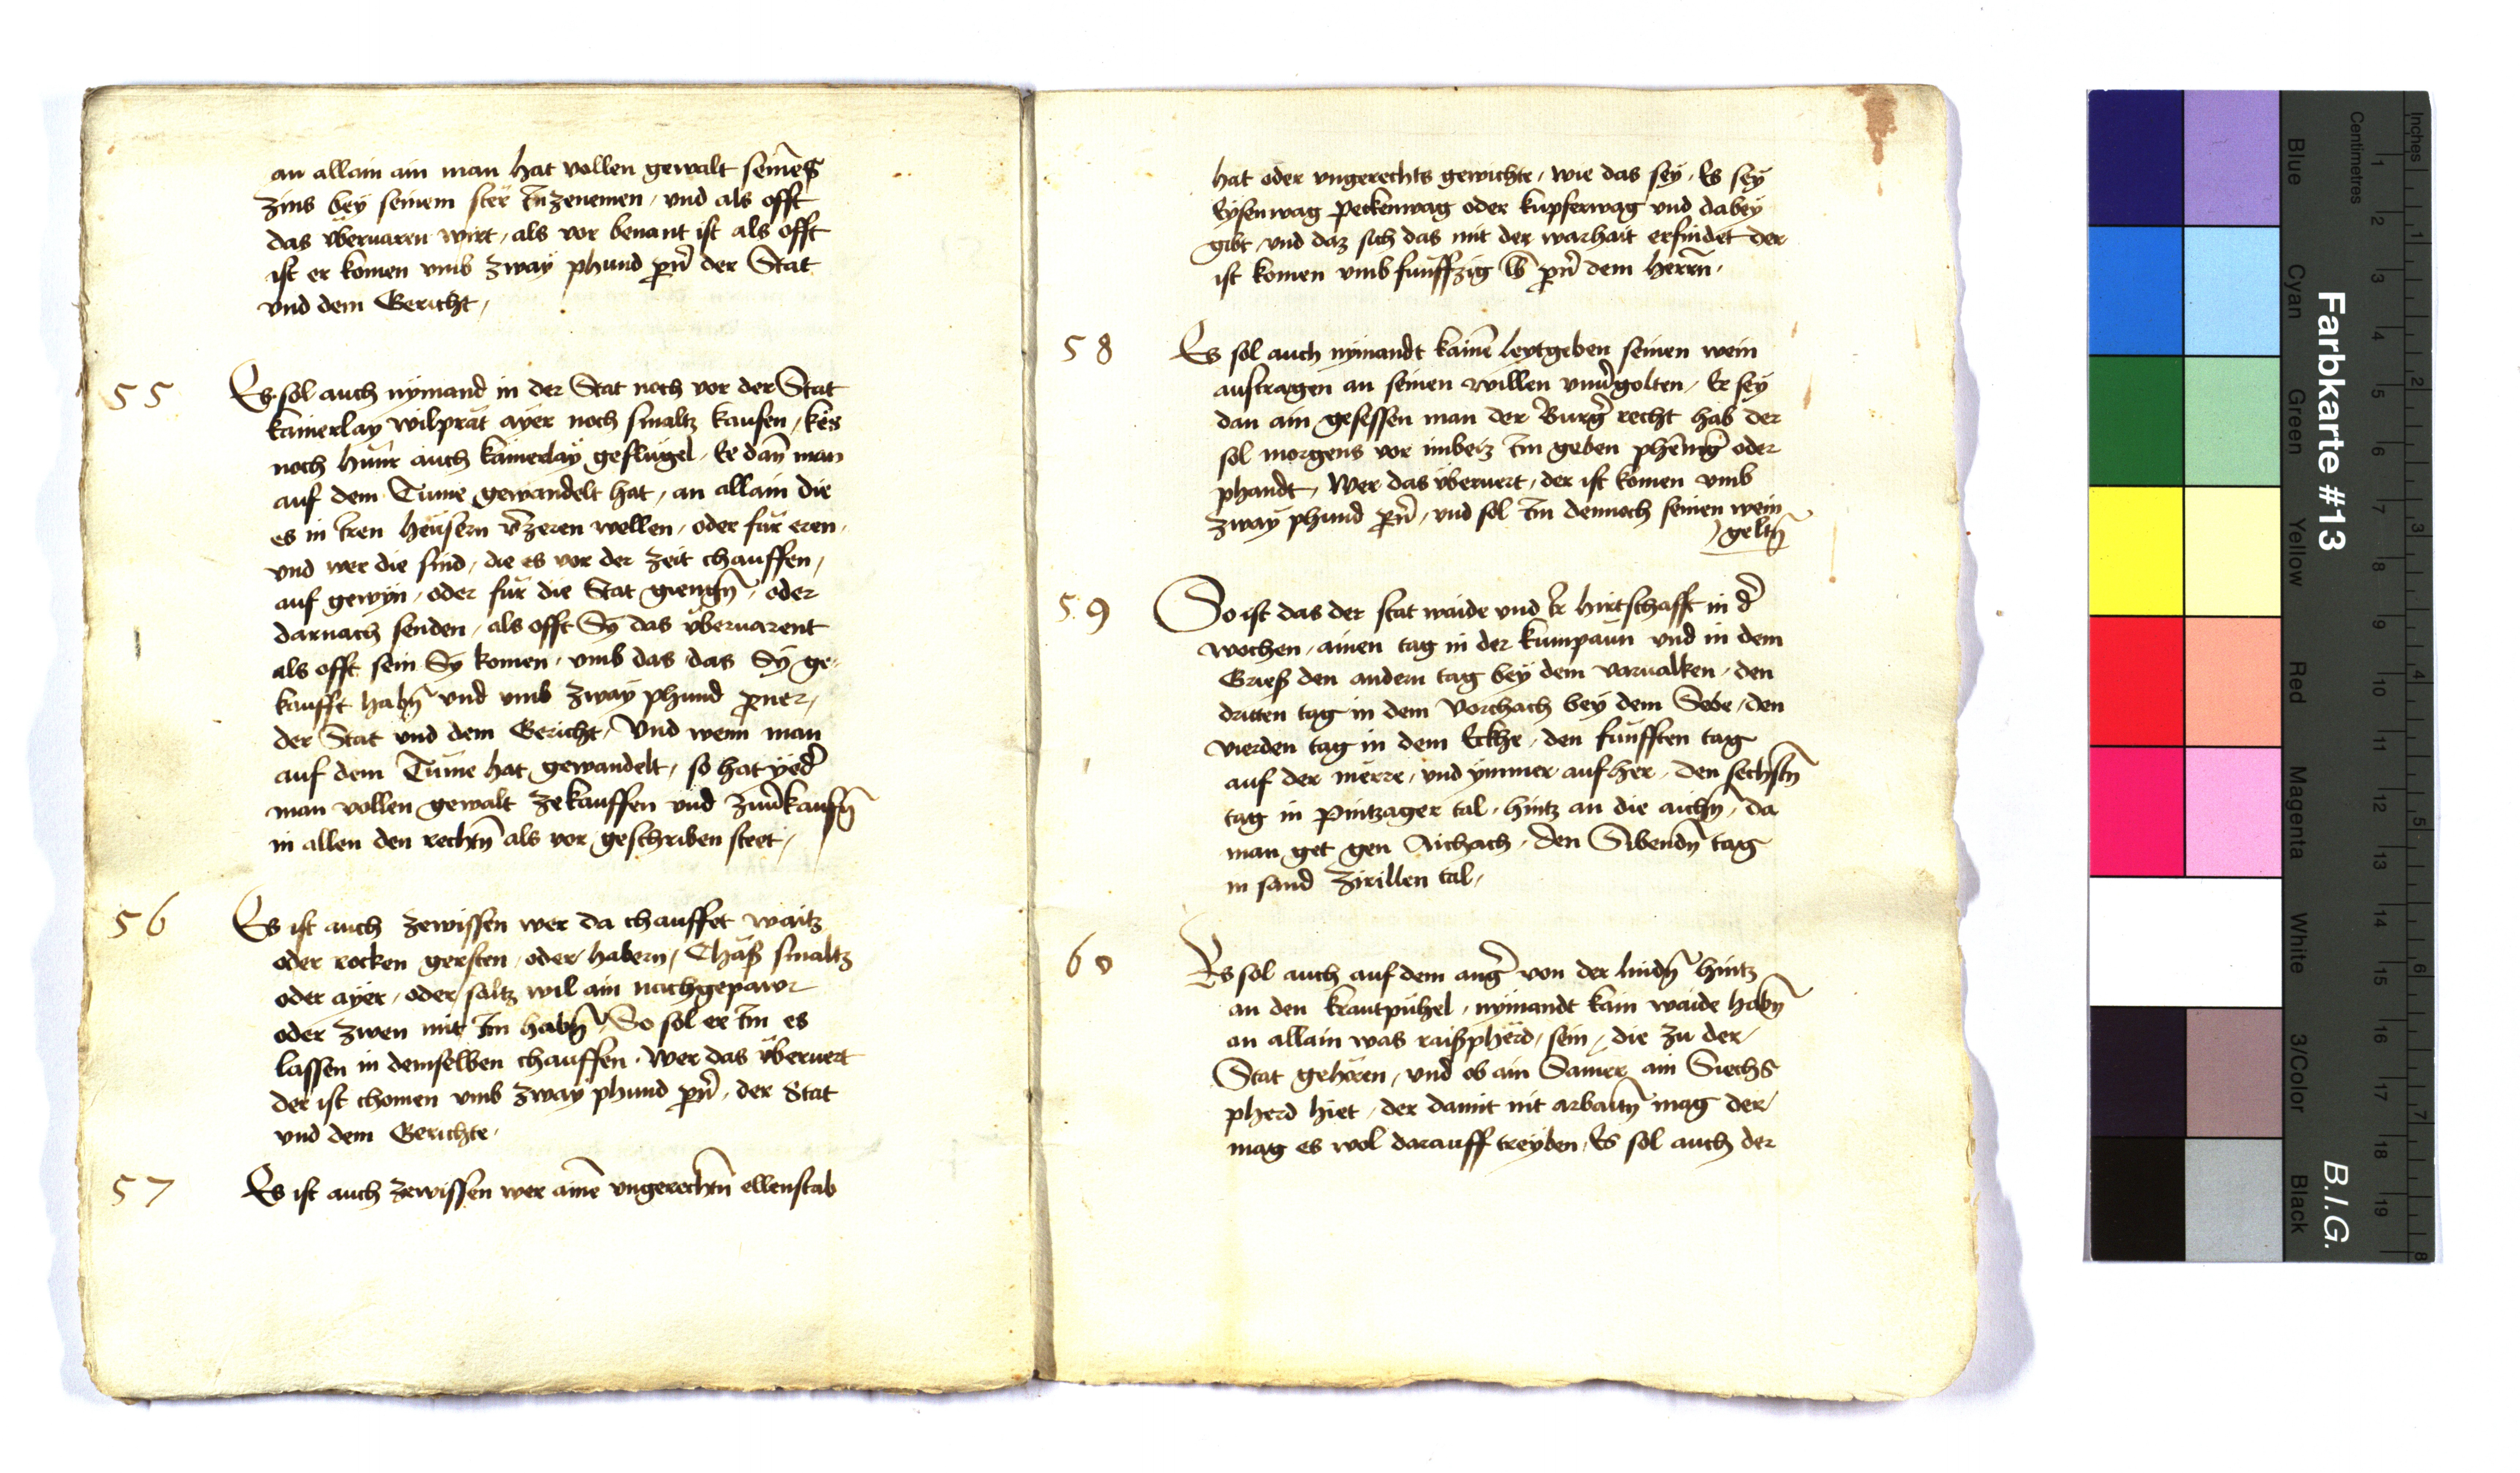 an allain ain man hat vollen gewalt seines
zins bey seinem ster Inzenemen, und als offt
das überuaren wirt, als vor benant ist als offt
ist er komen umb zway phund pn̄ der Stat
und dem Gericht,
55 Es sol auch nymand in der Stat noch vor der Stat
kainerlay wilprät ayer noch smaltz kaufen, kës
noch hünr auch kainerlay geflügel, Ee dan̄ man
auf dem Tume gewandelt hat, an allain die
es in Iren heusern v̄zeren wellen, oder für eren,
und wer die sind, die es vor der zeit chauffen,
auf gewyn, oder für die Stat giengn̄, oder
darnach senden, als offt Sy das überuarent
als offt sein Sy komen, umb das das Sy ge-
kaufft habn̄ und umb zway phund pner,
der Stat und dem Gericht, Und wenn man
auf dem Tume hat gewandelt, so hat yed̄
man vollen gewalt zekauffen und zuu̔kaufn̄
in allen den rechtn̄ als vor geschriben steet,
56 Es ist auch zewissen wer da chauffet waitz
oder rocken gersten, oder habern, Chäß smaltz
oder ayer, oder saltz wil ain nachgepawr
oder zwen mit Im habn̄, So sol er Im es
lassen in demselben chauffen. Wer das überuert
der ist chomen umb zway phund pn̄, der Stat
und dem Gerichte.
57 Es ist auch zewissen wer ainē ungerechtn̄ ellenstab
hat oder ungerechts gewichte, wie das sey, Es sey
Eysenwag Peckenwag oder kupferwag und dabey
gibt, und daz sich das mit der warhait erfindet der
ist komen umb fünffzig lb pn̄ dem herrn̄,
58 Es sol auch nymandt kainē leytgeben seinen wein
austragen an seinen willen unu̔golten, Er sey
dan ain gesessen man der Burg̔ recht hab der
sol morgens vor imbeiz Im geben phēnig̔ oder
phandt, Wer das überuert, der ist komen umb
zway phund pn̄, und sol Im dennoch seinen wein
geltn̄
59 So ist das der stat waide und Ir hirtschafft in d̔
wochen, ainen tag in der kumpaun und in dem
Grieß den andern tag bey dem varualken, den
dritten tag in dem Vorchach bey dem Sebe, den
vierden tag in dem Eckhe, den fünfften tag
auf der merre, und ymmer auf her, den sechstn̄
tag in Pintzager tal, hintz an die aichn̄, da
man get gen Aichach, den Sibendn̄ tag
in sand Zirillen tal,
60 Es sol auch auf dem ang̔ von der lindn̄ hintz
an den krautpühel, nymandt kain waide habn̄
an allain was raißpherd, sein, die zu der
Stat gehören, und ob ain Samer ain Siechs
pherd hiet, der damit nit arbaitn̄ mag der
mag es wol darauff treyben, Es sol auch der
Inches
Centimetres
Blue
Cyan
Green
Yellow
Red
Magenta
White
3/Color
Black
Farbkarte #13
B.I.G.
1 2 3 4 5 6 7 8 9 10 11 12 13 14 15 16 17 18 19
1 2 3 4 5 6 7 8